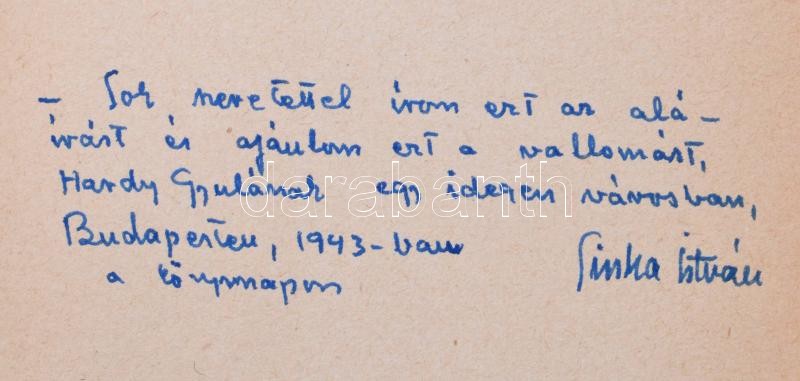 – Sok szeretettel irom ezt az alá–
írást és ajánlom ezt a vallomást,
Hardy Gyulának egy idegen városban,
Budapesten, 1943-ban
a könyvnapon
Sinka István
darabanth